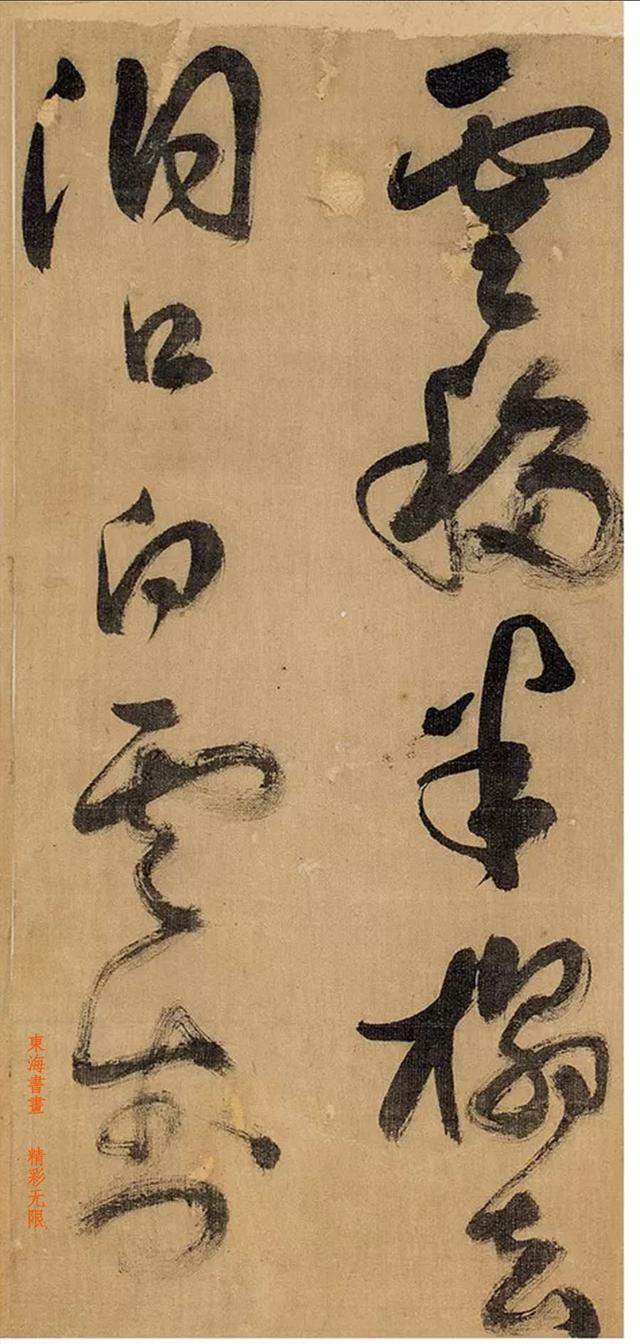 雲移半榻去
洞口白雲
東海書畫 精彩无限